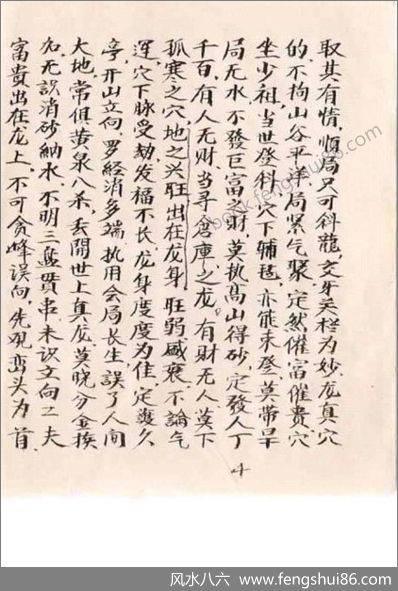 取其有情，顺局只可斜龍，交牙关栏为妙，龙真穴
的，不拘山谷平洋局紧气聚，定然催富催贵，穴
坐少祖，当世登科，穴下辅毡，亦能末登，莫带旱
局无水，不發巨富之財，莫执高山得砂，定發人丁
千百，有人无财，当寻倉庫之龙。有财无人，莫下
孤寒之穴，地之兴旺出在龙身，旺弱盛衰，不論气
运，穴下脉受劫，发福不长，龙身度度为佳，定步久
亭，开山立向，罗經消多端，执用会局长生，誤了人间
大地，常俱黄泉八杀，丢開世上真龙，莫晓分金挨
加，无誤消砂納水，不明三盤贯串，未识文向二夫
富贵出在龙上，不可贪峰误向，先观峦头为首
4
book.fengshui86.com
风水八六 www.fengshui86.com